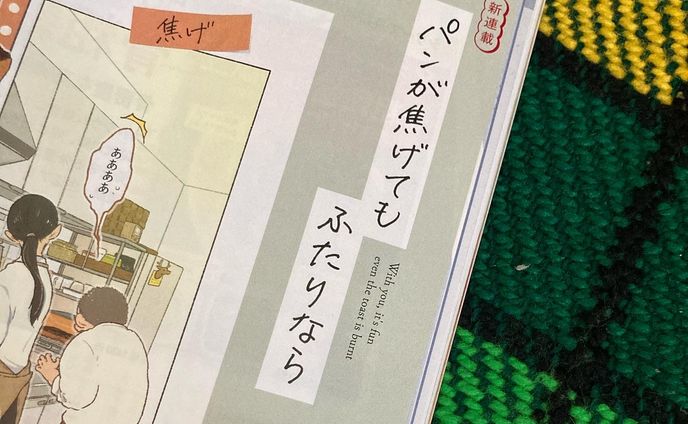 新連載
パンが焦げても
ふたりなら
With you, it's fun
even the toast is burnt
焦げ
ああああ